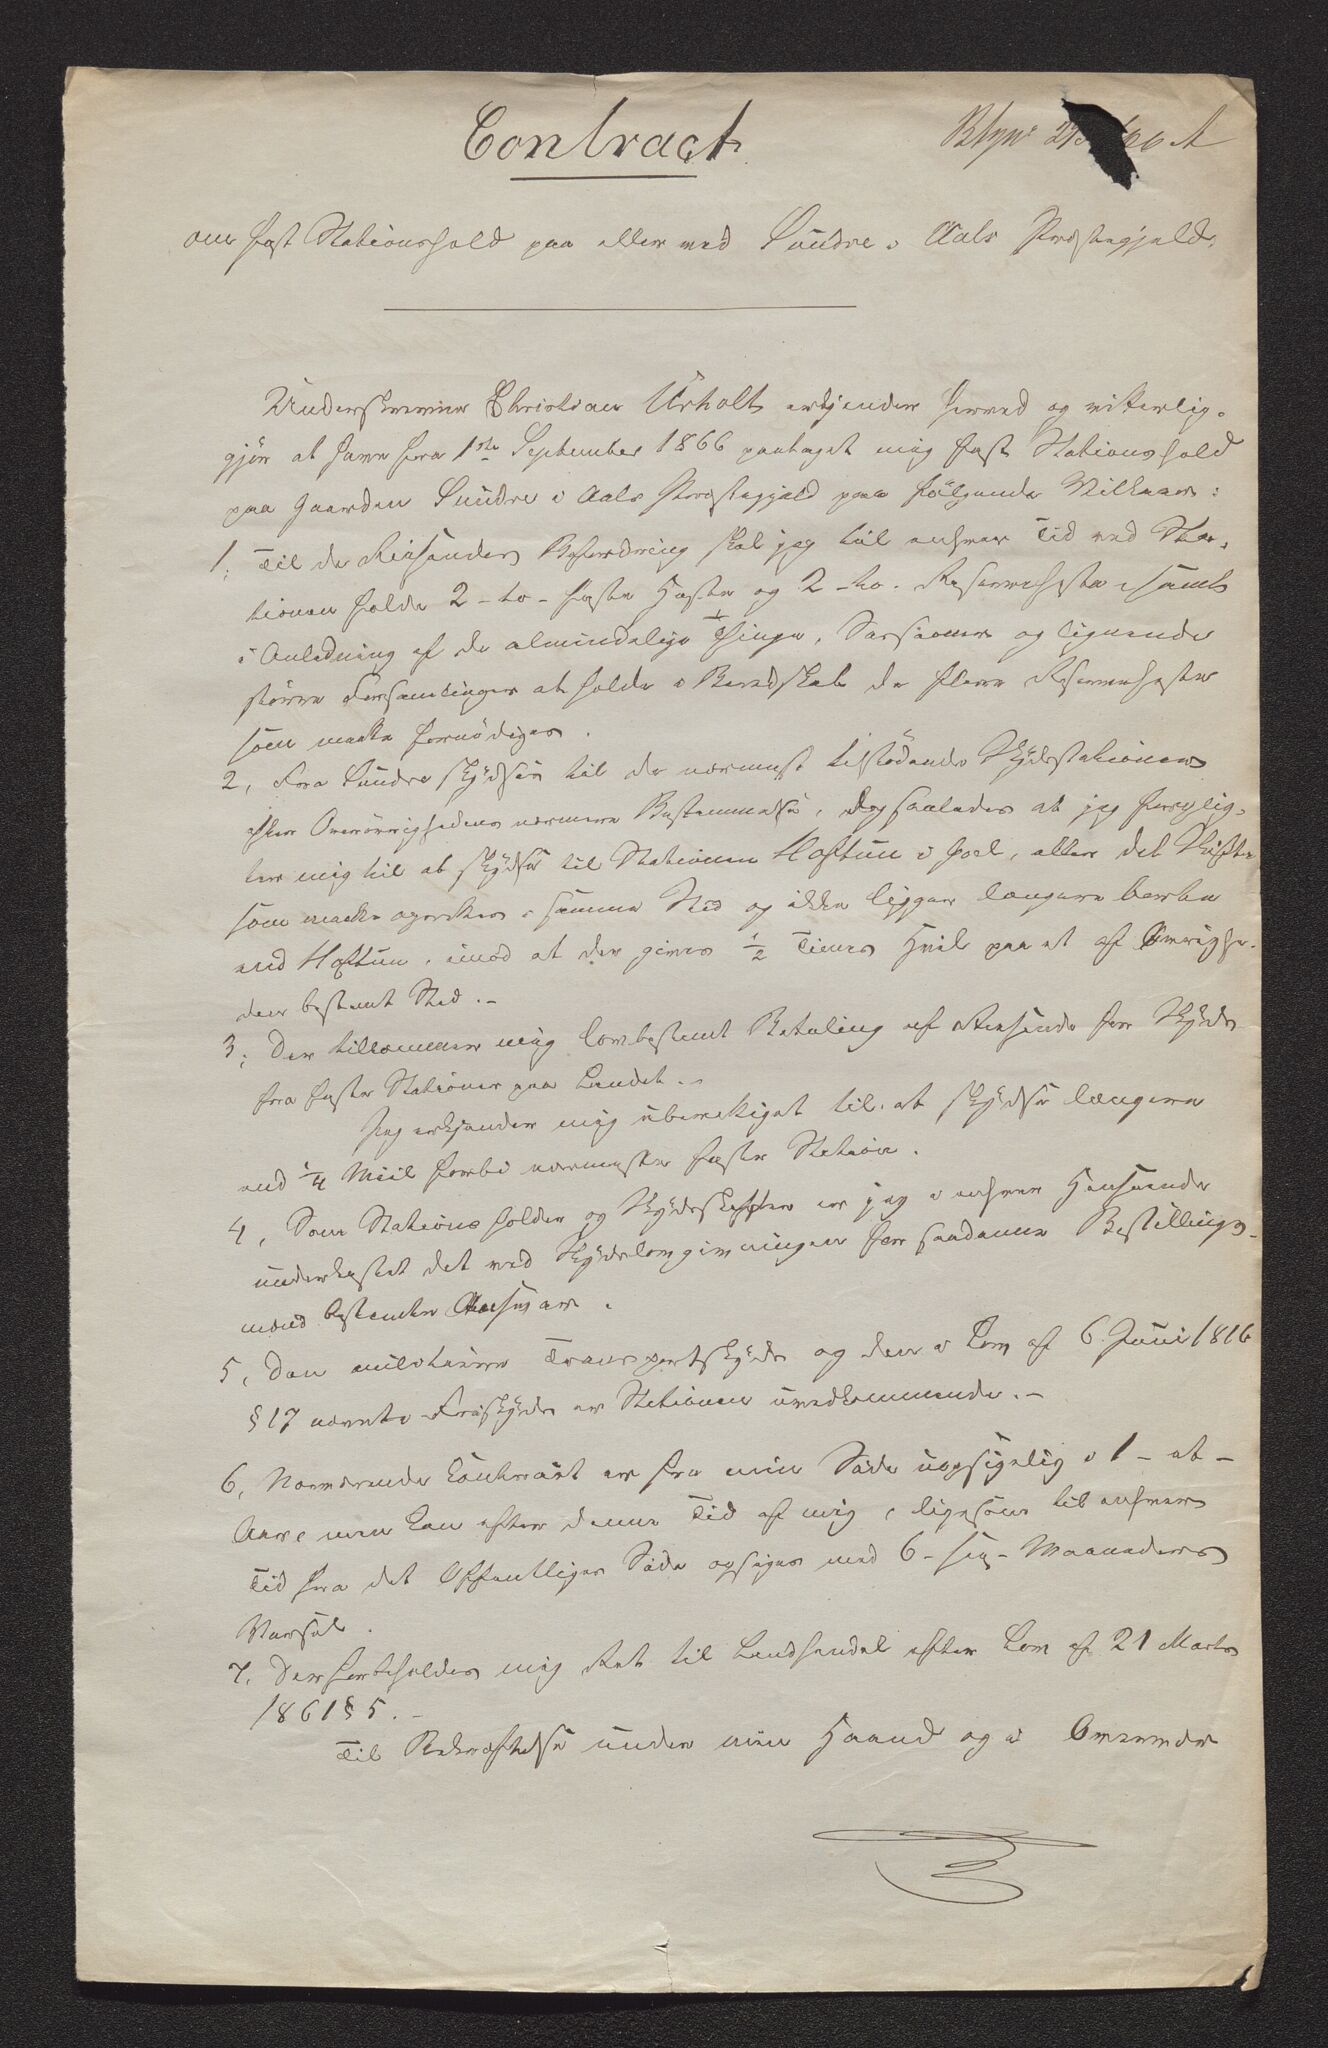 Contract
om fast Stationshold paa eller ved Sundre i Aals Præstegjeld.
Underskrevne Christian Urholt erkjender herved og vitterlig-
gjør at have fra 1ste September 1866 paataget mig fast Stationshold
paa Gaarden Sundre i Aals Præstegjeld paa følgende Vilkaar:
1, Til de Reisendes Befordring skal jeg til enhver Tid ved Sta-
tionen holde 2 - to - faste Heste og 2 - to - Reserveheste, samt
i Anledning af de almindelige Thinge, Sessioner og lignende
større Forsamlinger at holde i Beredskab de flere Reserveheste
som maatte fornødiges.
2, Fra Sundre skydses til de nærmest tilstødende Skydsstationer
efter Overøvrighedens nærmere Bestemmelse, dog saaledes at jeg forplig-
ter mig til at skydse til Stationen Haftun i Hoel, eller det Skifte
som maatte oprettes i samme Sted og ikke ligger længere borte
end Haftun, imod at der gives ½ Times Hvil paa et af Øvrighe-
den bestemt Sted. -
3, Der tilkommer mig lovbestemt Betaling af Reisende for Skyds
fra faste Stationer paa Landet. -
Jeg erkjender mig uberettiget til at skydse længere
end ¼ Miil forbi nærmeste faste Station.
4, Som Stationsholder og Skydsskaffer er jeg i enhver Henseende
underkastet det ved Skydslovgivningen for saadanne Bestillings-
mænd bestemte Ansvar.
5, Den militaire Transportskyds og den i Lov af 6 Juni 1816
§ 17 nævnte Friskyds er Stationen uvedkommende. -
6, Nærværende Contract er fra min Side uopsigelig i 1 - et -
Aar, men kan efter denne Tid af mig, ligesom til enhver
Tid fra det Offentliges Side opsiges med 6 - sex - Maaneders
Varsel.
7, Der forbeholdes mig Ret til Landhandel efter Lov af 21 Marts
1861 § 5. -
Til Bekræftelse under min Haand og i Overvær